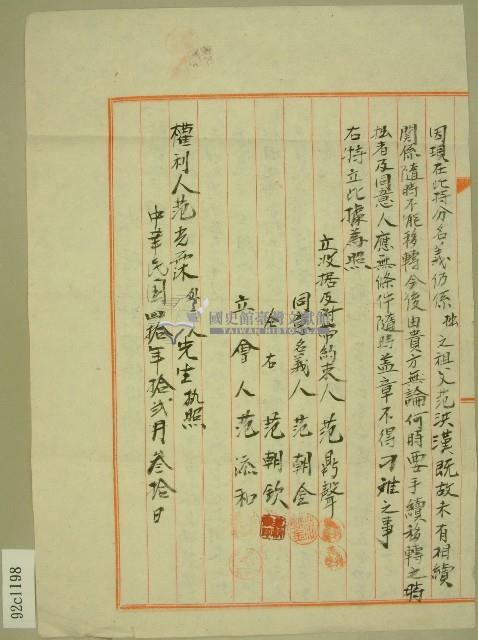 因現在此持分名義仍係拙之祖父范洪漢既故未有相續
關係隨時不能移轉今後由貴方無論何時要手續移轉之時
拙者及同意人應無條件隨時蓋章不得刁难之事
右特立此據為照
立收据及附帶約束人 范鼎聲
同意名義人 范朝金
仝右 范朝欽
立會人 范添和
權利人范光霖 外 人先生执照
中華民國四拾年拾弍月叁拾日
國史館臺灣文獻館
TAIWAN HISTORICA
92c1198